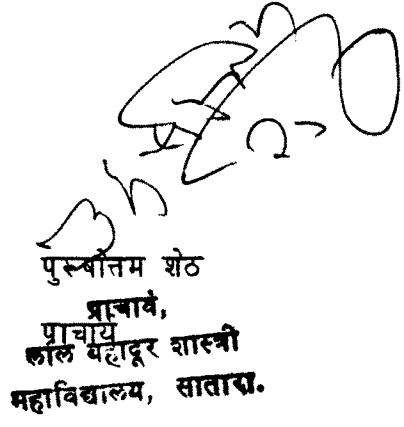 पुरुषोत्तम शेठ
प्राचार्य,
प्राचार्य
लाल बहादूर शास्त्री
महाविद्यालय, सातारा.